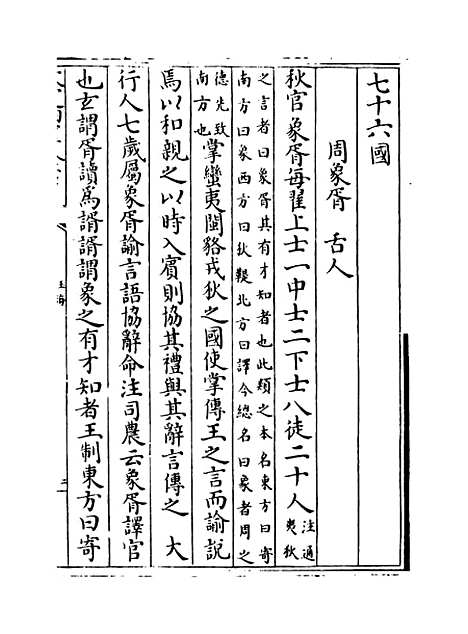 七十六國
周象胥 舌人
秋官象胥每翟上士一中士二下士八徒二十人注通夷狄
之言者曰象胥其有才知者也此類之本名東方曰寄
南方曰象西方曰狄鞮北方曰譯今總名曰象者周之
德先致南方也掌蠻夷閩貉戎狄之國使掌傳王之言而諭說
焉以和親之以時入賓則協其禮與其辭言傳之 大
行人七歲屬象胥諭言語協辭命注司農云象胥譯官
也玄謂胥讀爲諝諝謂象之有才知者王制東方曰寄
玉海
二